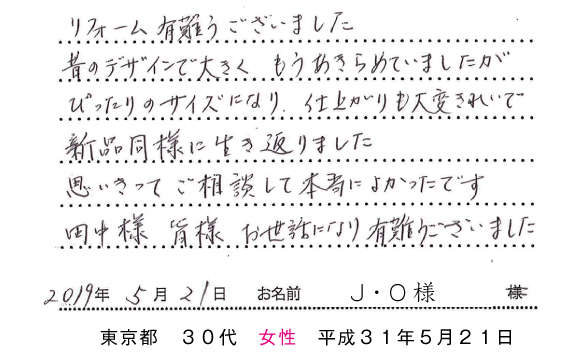 リフォーム有難うございました
昔のデザインで大きく もうあきらめていましたが
ぴったりのサイズになり、仕上がりも大変きれいで
新品同様に生き返りました
思いきって ご相談して本当によかったです
田中様 皆様 お世話になり有難うございました
2019年 5月 21日 お名前 J・O様 様
東京都 30代 女性 平成31年5月21日